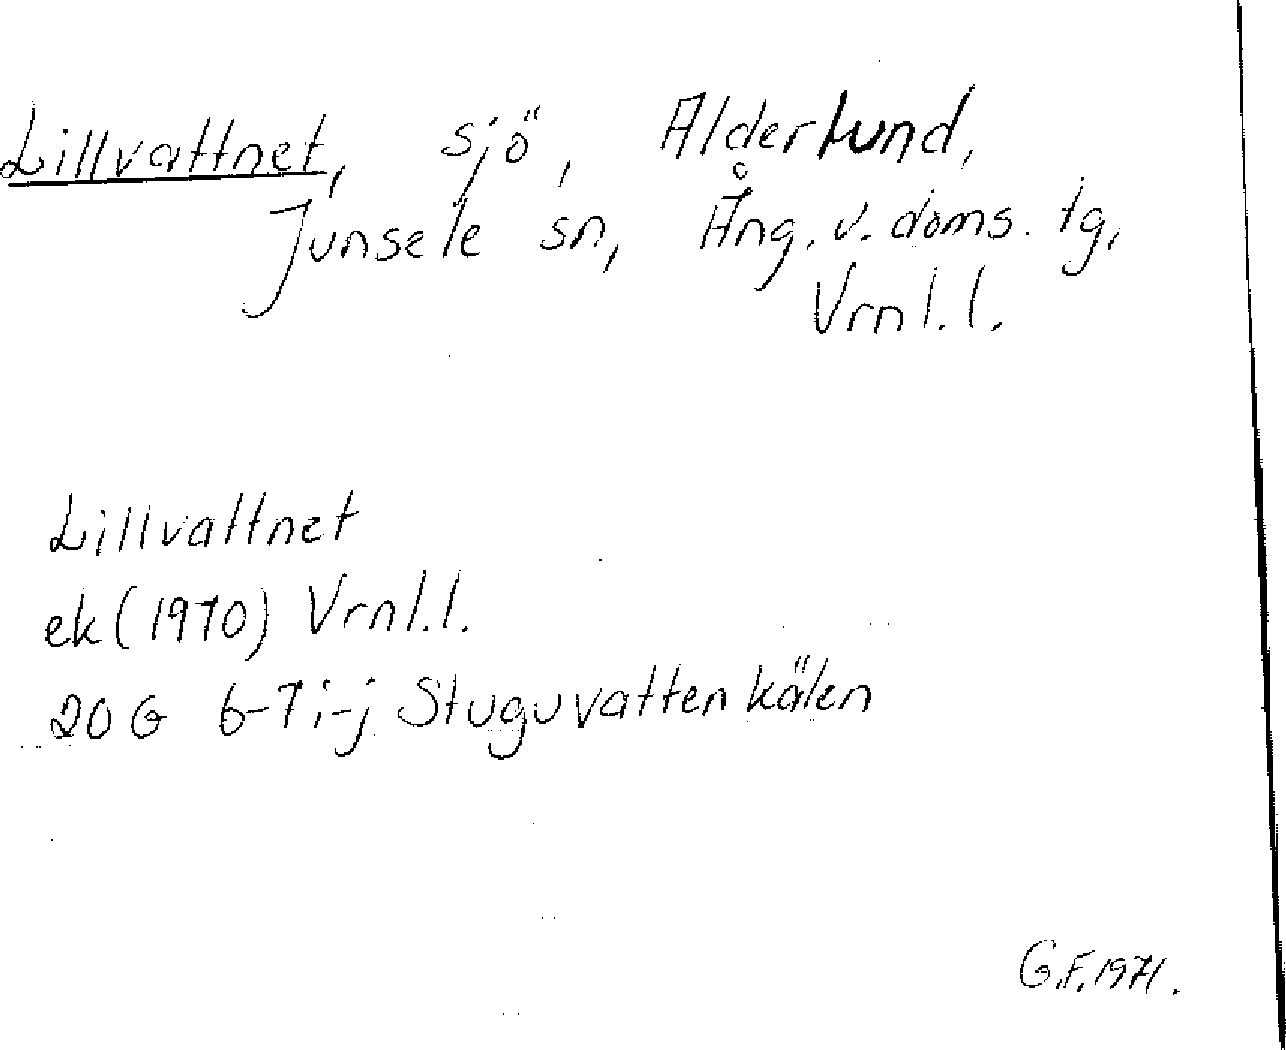 Lillvattnet, sjö, Alderlund,
Junsele sn, Ång. v. doms. tg,
Vrnl.l.
Lillvattnet
ek (1970) Vrnl.l.
20 G 6-7 i-j Stuguvattenkälen
G.F. 1971.